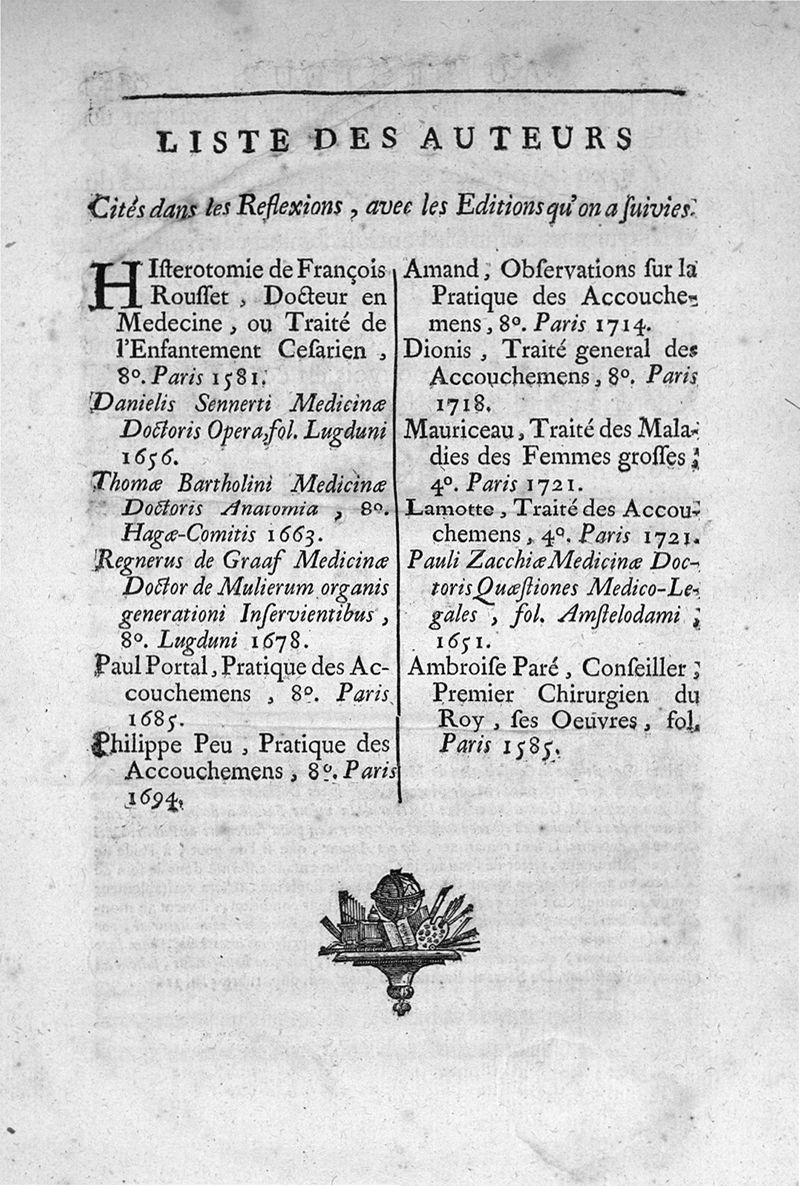 LISTE DES AUTEURS
Cités dans les Reflexions, avec les Editions qu'on a ſuivies.
HIſterotomie de François
Rouſſet, Docteur en
Medecine, ou Traité de
l'Enfantement Ceſarien,
8º. Paris 1581.
Danielis Sennerti Medicinæ
Doctoris Opera, fol. Lugduni
1656.
Thomæ Bartholini Medicinæ
Doctoris Anatomia, 8º.
Hagæ-Comitis 1663.
Regnerus de Graaf Medicinæ
Doctor de Mulierum organis
generationi Inſervientibus,
8º. Lugduni 1678.
Paul Portal, Pratique des Ac-
couchemens, 8º. Paris
1685.
Philippe Peu, Pratique des
Accouchemens, 8º. Paris
1694.
Amand, Obſervations ſur la
Pratique des Accouche-
mens, 8º. Paris 1714.
Dionis, Traité general des
Accouchemens, 8º. Paris
1718.
Mauriceau, Traité des Mala-
dies des Femmes groſſes;
4º. Paris 1721.
Lamotte, Traité des Accou-
chemens, 4º. Paris 1721.
Pauli Zacchiæ Medicinæ Doc-
toris Quæſtiones Medico-Le-
gales, fol. Amſtelodami,
1651.
Ambroiſe Paré, Conſeiller;
Premier Chirurgien du
Roy, ſes Oeuvres, fol.
Paris 1585.